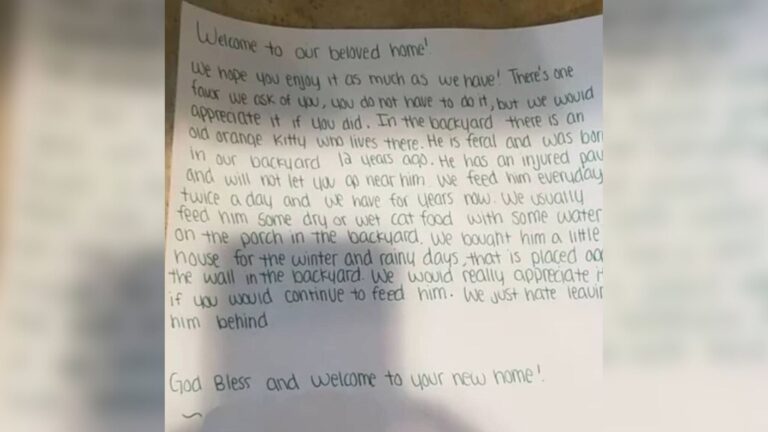 Welcome to our beloved home!
We hope you enjoy it as much as we have! There's one
favor we ask of you, you do not have to do it, but we would
appreciate it if you did. In the backyard there is an
old orange kitty who lives there. He is feral and was born
in our backyard 12 years ago. He has an injured paw
and will not let you go near him. We feed him everyday
twice a day and we have for years now. We usually
feed him some dry or wet cat food with some water
on the porch in the backyard. We bought him a little
house for the winter and rainy days, that is placed
the wall in the backyard. We would really appreciate it
if you would continue to feed him. We just hate leavin
him behind
God Bless and welcome to your new home!